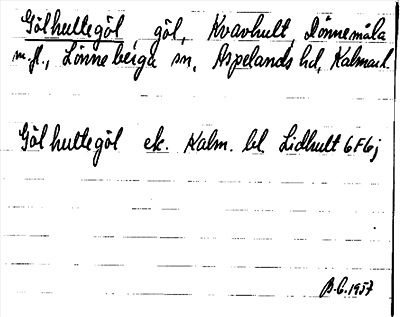 Gölhultegöl, göl, Kvavhult, Rönnemåla
m.fl., Lönneberga sn, Aspelands hd, Kalmar l.
Gölhultegöl ek. Kalm. bl Lidhult 6F6j
B.C. 1957